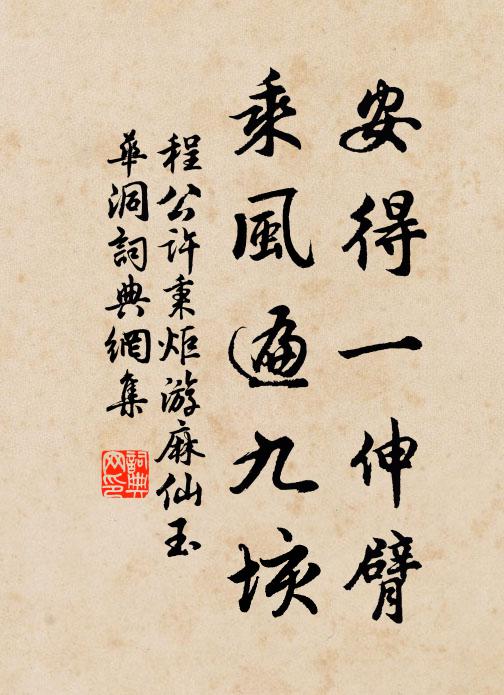 安得一伸臂
乘風遍九垓
程公許秉炬游麻仙玉
華洞詞典網集
詞典
网印